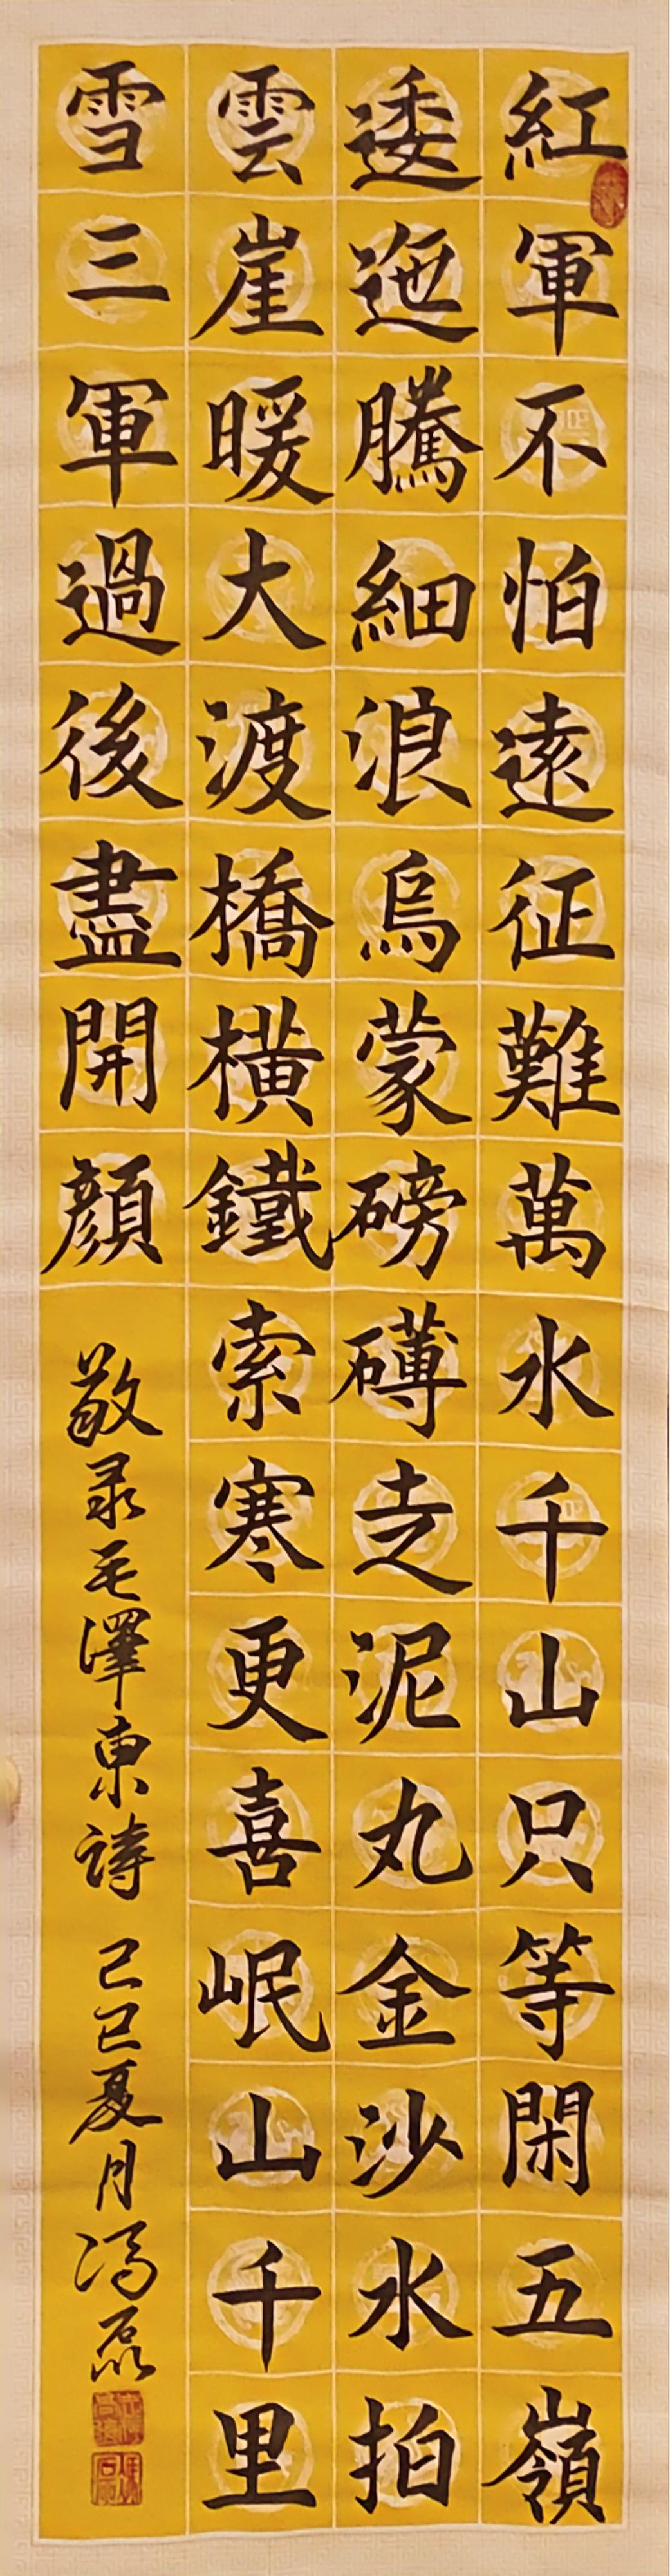 紅軍不怕遠征難萬水千山只等閑五嶺
逶迤騰細浪烏蒙磅礡走泥丸金沙水拍
雲崖暖大渡橋橫鐵索寒更喜岷山千里
雪三軍過後盡開顏
敬录毛澤東詩 己巳夏月冯磊